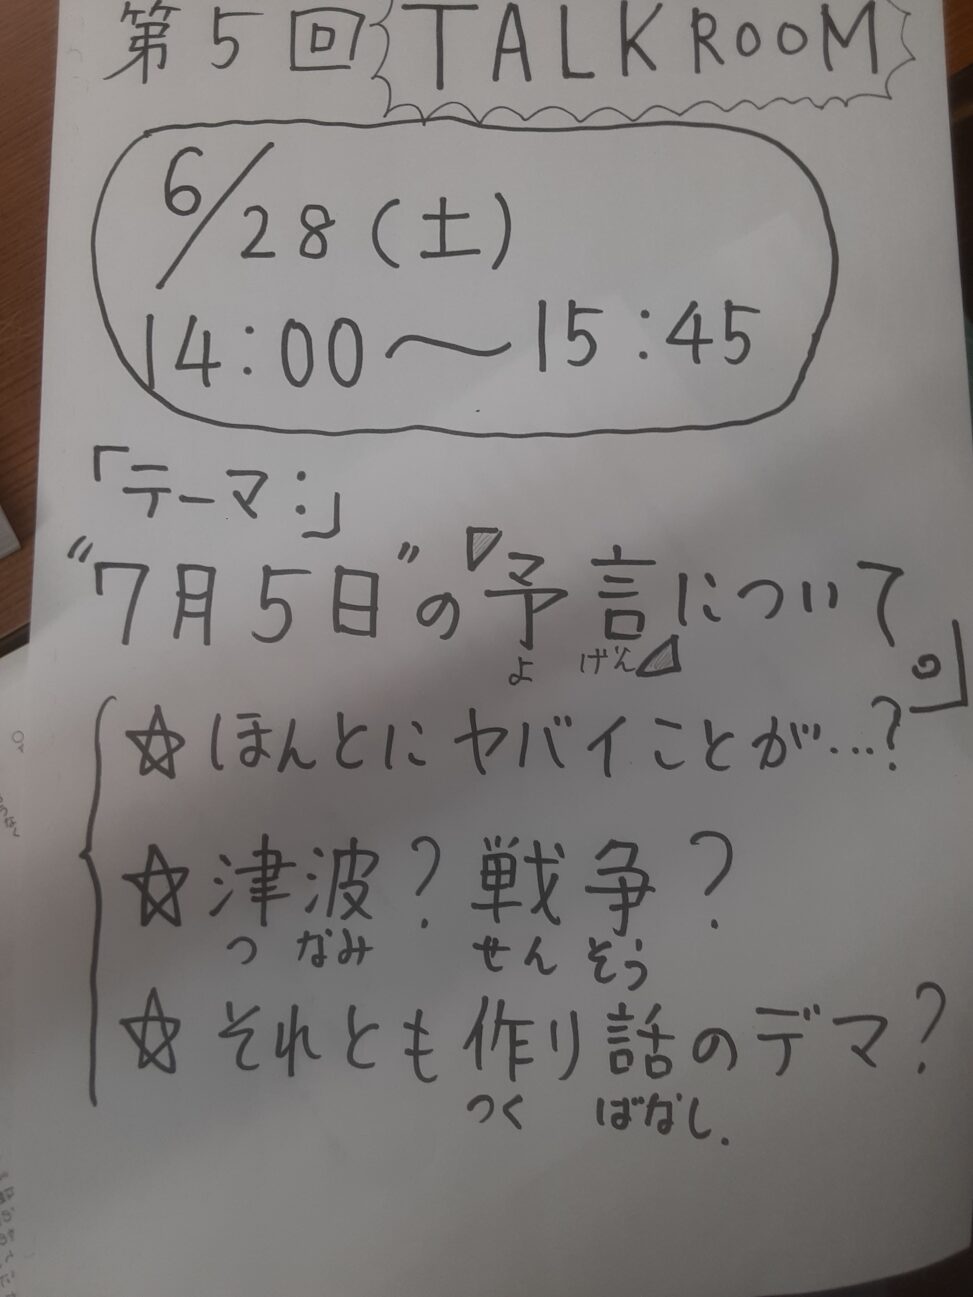 第5回 TALKROOM
6/28(土)
14:00〜15:45
「テーマ:」
"7月5日"の『予言について。』
よ げん
☆ほんとにヤバイことが…?
☆津波?戦争?
つ なみ せん そう
☆それとも作り話のデマ?
つく ばなし.